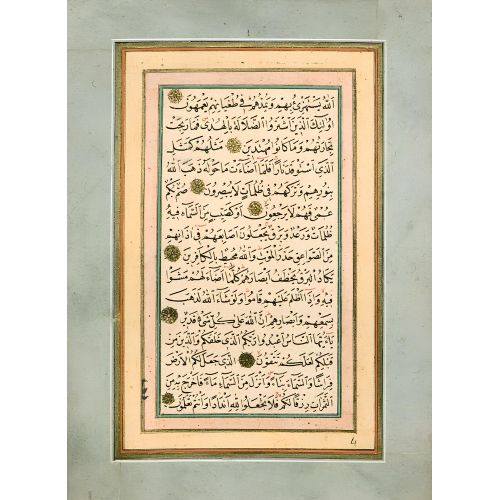 الله يستهزئ بهم ويمدهم في طغيانهم يعمهون
اولئك الذين اشتروا الضلالة بالهدى فما ربحت
تجارتهم وما كانوا مهتدين مثلهم كمثل
الذي استوقد نارا فلما اضاءت ما حوله ذهب الله
بنورهم وتركهم في ظلمات لا يبصرون صم بكم
عمي فهم لا يرجعون او كصيب من السماء فيه
ظلمات ورعد وبرق يجعلون اصابعهم في اذانهم
من الصواعق حذر الموت والله محيط بالكافرين
يكاد البرق يخطف ابصارهم كلما اضاء لهم مشوا
فيه واذا اظلم عليهم قاموا ولو شاء الله لذهب
بسمعهم وابصارهم ان الله على كل شيء قدير
يا ايها الناس اعبدوا ربكم الذي خلقكم والذين من
قبلكم لعلكم تتقون الذي جعل لكم الارض
فراشا والسماء بناء وانزل من السماء ماء فاخرج به من
الثمرات رزقا لكم فلا تجعلوا لله اندادا وانتم تعلمون